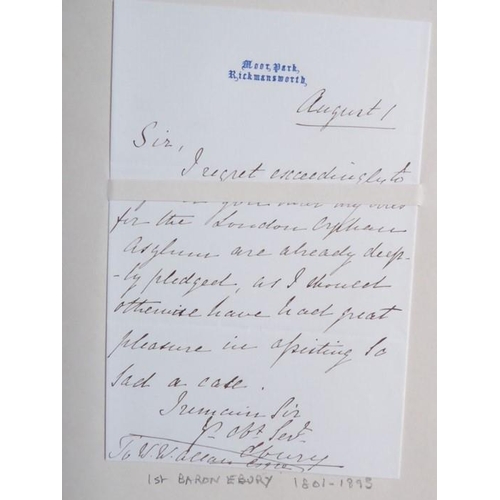 Moor Park,
Rickmansworth,
August 1
Sir,
I regret exceedingly to
for the London Orphan
Asylum are already deep-
-ly pledged, as I should
otherwise have had great
pleasure in assisting so
sad a case.
I remain Sir
Yr Obt Servt.
Ebury
To W. W.
1st BARON EBURY 1801-1893